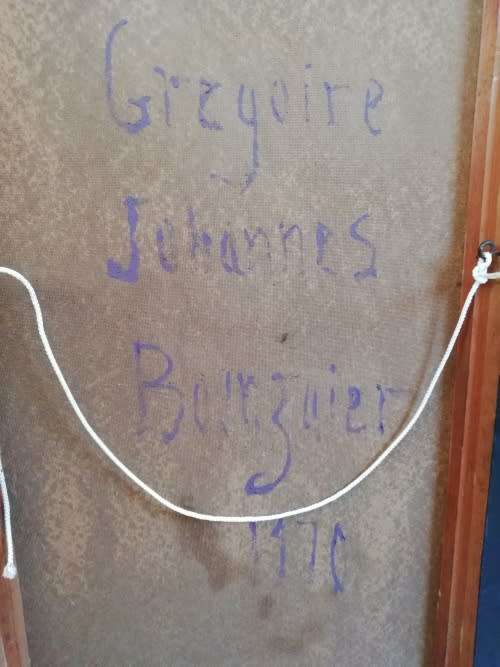 Gregoire
Johannes
Boonzaier
1970